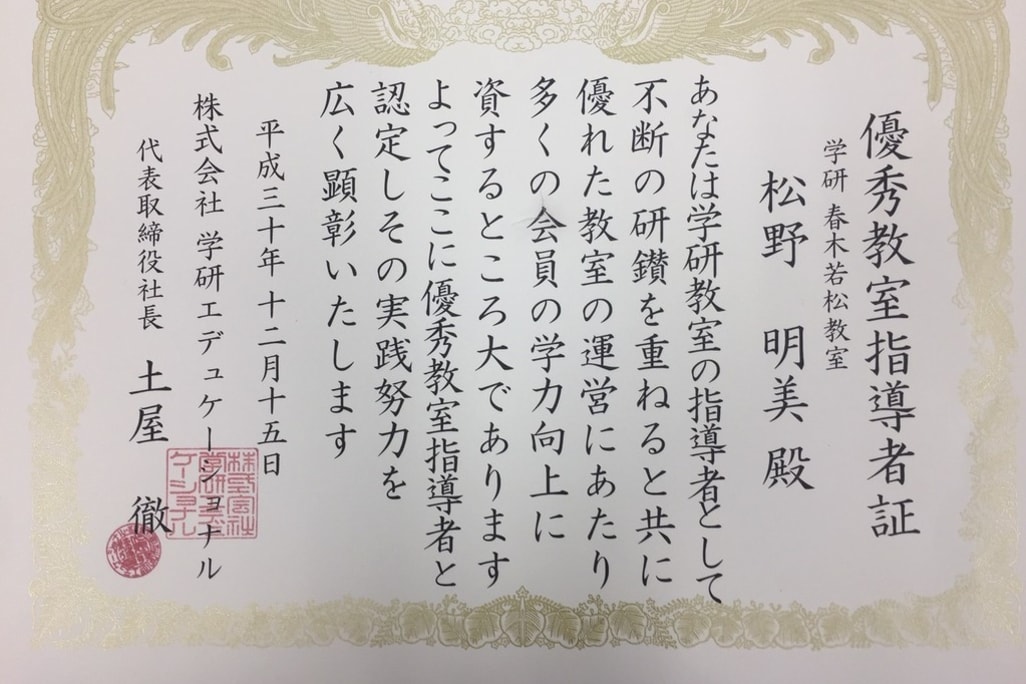 優秀教室指導者証
学研 春木若松教室
松野 明美 殿
あなたは学研教室の指導者として
不断の研鑚を重ねると共に
優れた教室の運営にあたり
多くの会員の学力向上に
資するところ大であります
よってここに優秀教室指導者と
認定しその実践努力を
広く顕彰いたします
平成三十年 十二月十五日
株式会社 学研エデュケーショナル
代表取締役社長 土屋 徹
株式会社
学研エデュ
ケーショナル